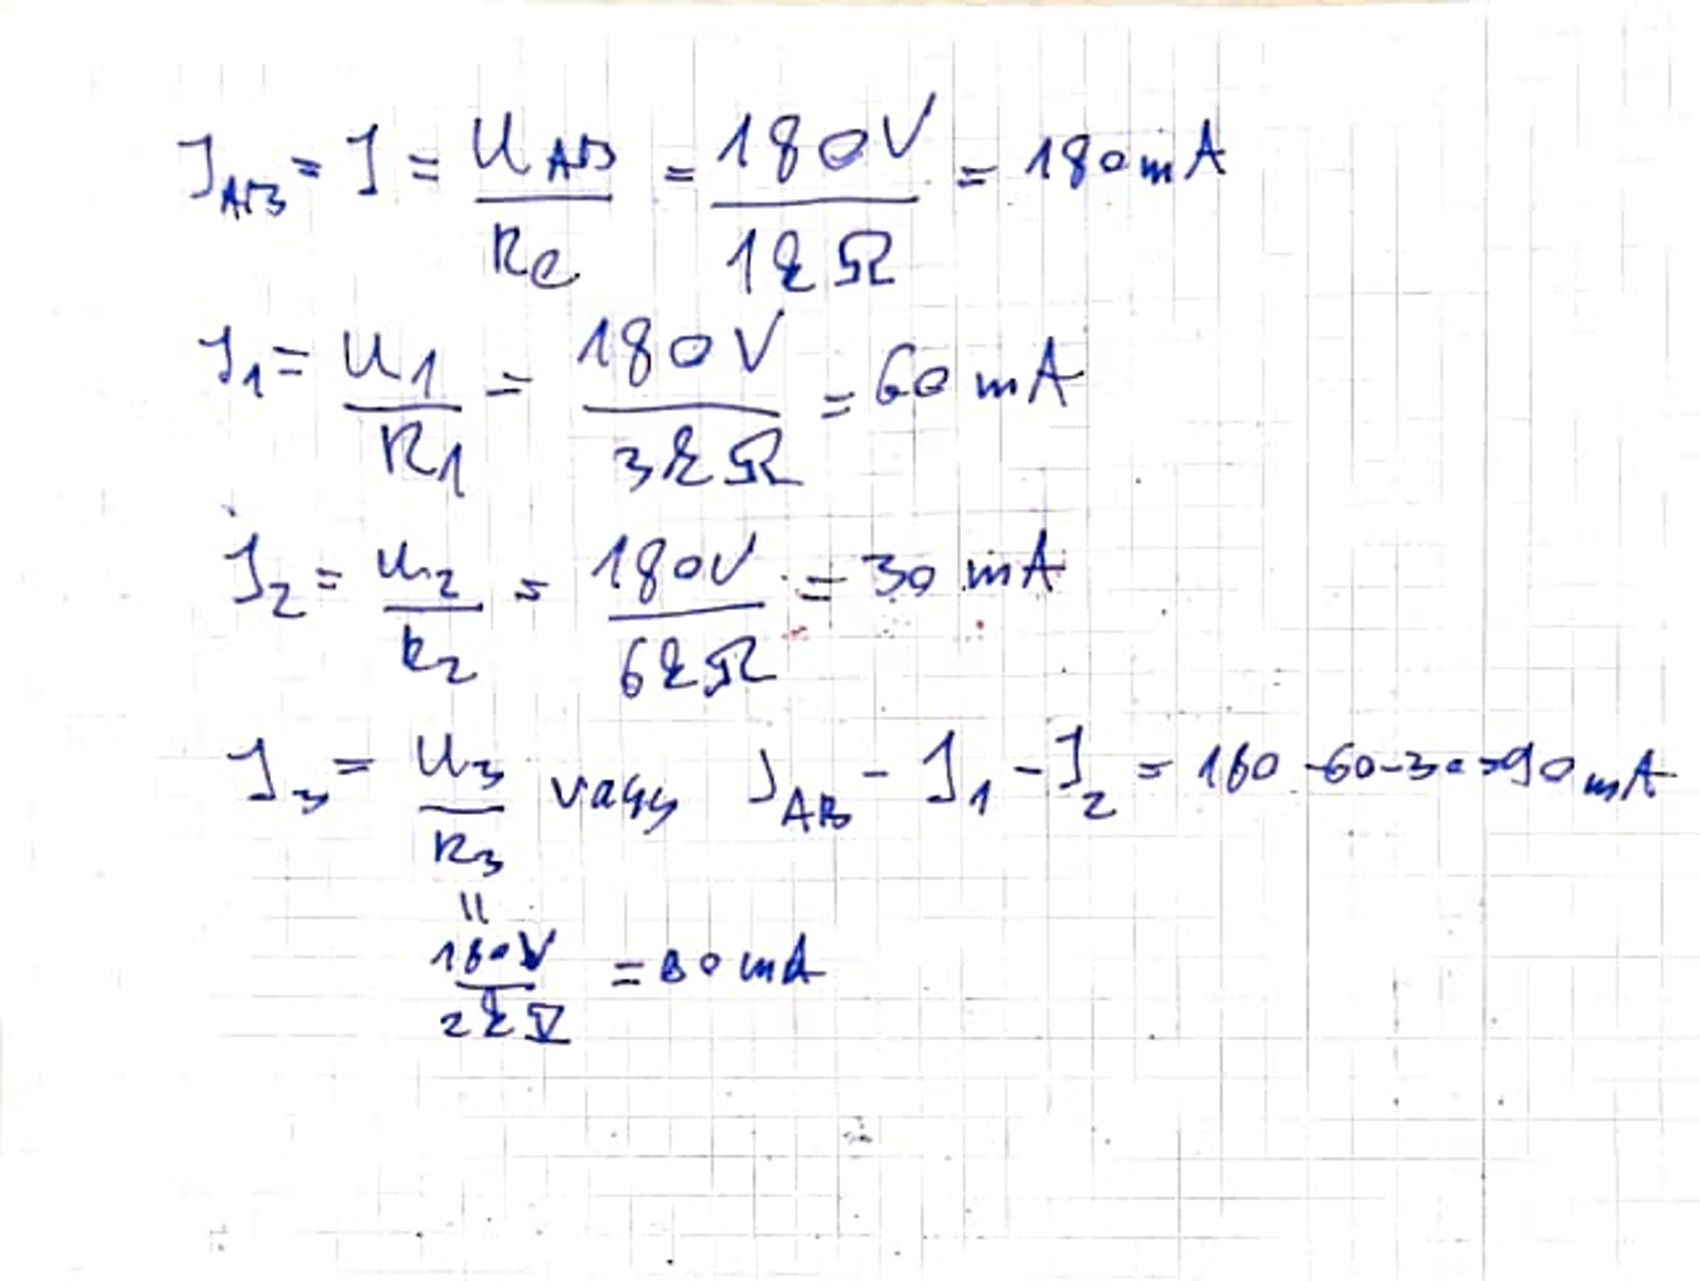 I_AB = I = U_AB / R_e = 180V / 1kΩ = 180mA
I_1 = U_1 / R_1 = 180V / 3kΩ = 60 mA
I_2 = U_2 / R_2 = 180V / 6kΩ = 30 mA
I_3 = U_3 / R_3 vagy I_AB - I_1 - I_2 = 180 - 60 - 30 = 90 mA
=
180V / 2kΩ = 90 mA